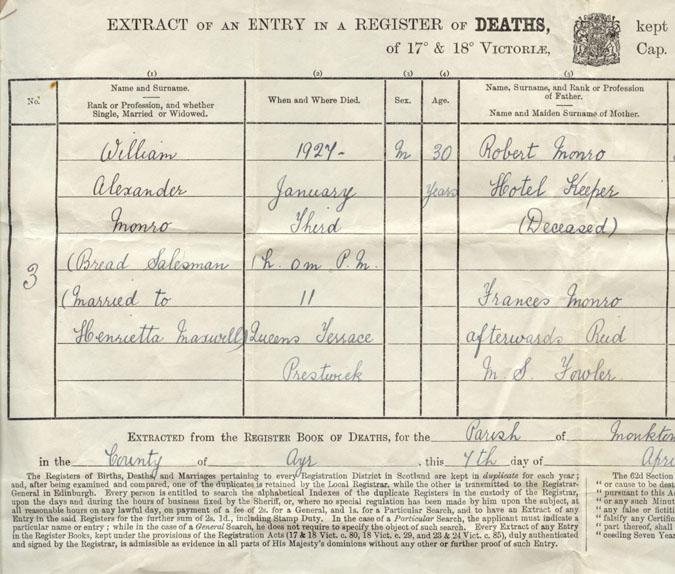 EXTRACT OF AN ENTRY IN A REGISTER OF DEATHS, kept
of 17° & 18° VICTORIÆ, Cap.
(1) (2) (3) (4) (5)
No. Name and Surname. Rank or Profession, and whether Single, Married or Widowed. When and Where Died. Sex. Age. Name, Surname, and Rank or Profession of Father. Name and Maiden Surname of Mother.
William 1927- M 30 Robert Monro
Alexander January Years Hotel Keeper
Monro Third (Deceased)
3 (Bread Salesman 1h. 0m P.M.
(Married to 11 Frances Monro
Henrietta Maxwell) Queens Terrace afterwards Reid
Prestwick M. S. Fowler
EXTRACTED from the REGISTER BOOK OF DEATHS, for the Parish of Monkton
in the County of Ayr, this 7th day of Apri
The Registers of Births, Deaths, and Marriages pertaining to every Registration District in Scotland are kept in duplicate for each year;
and, after being examined and compared, one of the duplicates is retained by the Local Registrar, while the other is transmitted to the Registrar-
General in Edinburgh. Every person is entitled to search the alphabetical Indexes of the duplicate Registers in the custody of the Registrar,
upon the days and during the hours of business fixed by the Sheriff, or, where no special regulation has been made by him upon the subject, at
all reasonable hours on any lawful day, on payment of a fee of 2s. for a General, and 1s. for a Particular Search, and to have an Extract of any
Entry in the said Registers for the further sum of 2s. 1d., including Stamp Duty. In the case of a Particular Search, the applicant must indicate a
particular name or entry; while in the case of a General Search, he does not require to specify the object of such search. Every Extract of any Entry
in the Register Books, kept under the provisions of the Registration Acts (17 & 18 Vict. c. 80, 18 Vict. c. 29, and 23 & 24 Vict. c. 85), duly authenticated
and signed by the Registrar, is admissible as evidence in all parts of His Majesty's dominions without any other or further proof of such Entry.
The 62d Section
" or cause to be
" pursuant to this
" or any such
" any false or
" falsify any
" part thereof, shall
" ceeding Seven Year